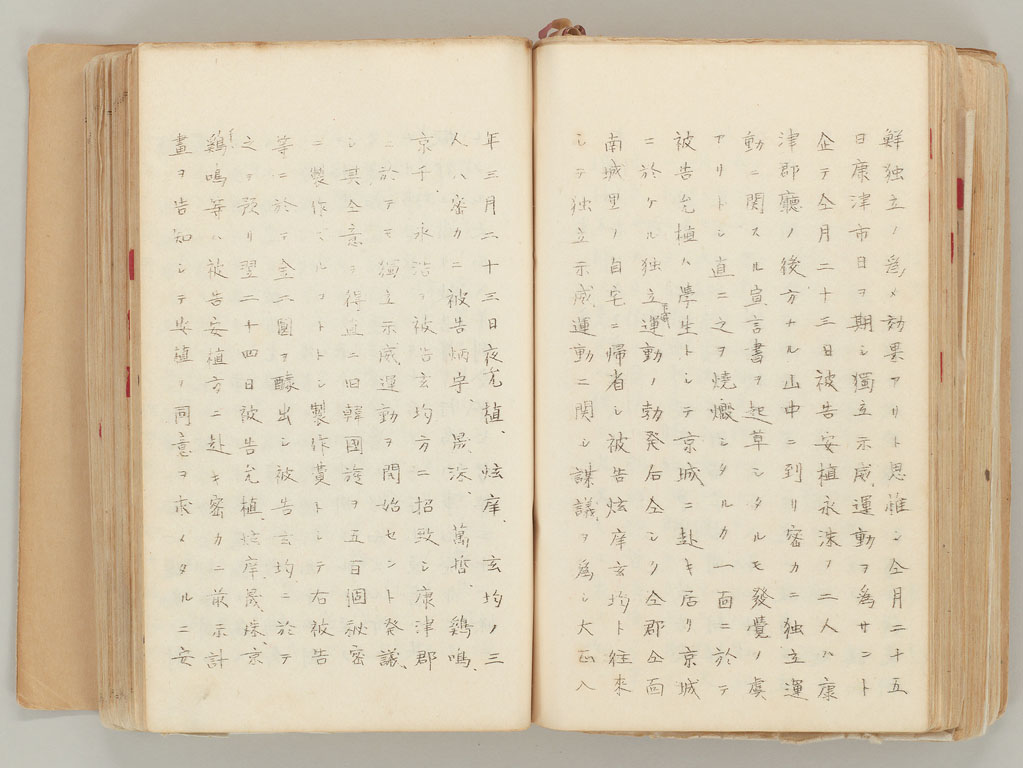 鮮独立ノ為メ効果アリト思惟シ仝月二十五
日康津市日ヲ期シ獨立示威運動ヲ為サント
企テ仝月二十三日被告安植永洙ノ二人ハ康
津郡廳ノ後方ナル山中ニ到リ審カニ独立運
動ニ関スル宣言書ヲ起草シタルモ發覺ノ虞
アリトシ直ニ之ヲ焼燬シタルカ一面ニ於テ
被告允植ハ學生トシテ京城ニ赴キ居リ京城
ニ於ケル独立運動ノ勃発后仝シク仝郡仝面
南城里ノ自宅ニ帰省シ被告炫庠玄均ト往來
シテ独立示威運動ニ関シ謀議ヲ為シ大正八
年三月二十三日夜允植、炫庠、玄均ノ三
人ハ密カニ被告炳宇、晟洙、萬哲、鷄鳴、
京千、永浩ヲ被告玄均方ニ招致シ康津郡
ニ於テモ獨立示威運動ヲ開始セント発議
シ其仝意ヲ得直ニ旧韓國旗ヲ五百個秘密
ニ製作スルヿトシ製作費トシテ右被告
等ニ於テ金二圓ヲ醵出シ被告玄均ニ於テ
之ヲ預リ翌二十四日被告允植、炫庠晟洙京
千鷄鳴等ハ被告安植方ニ赴キ密カニ前示計
畫ヲ告知シテ安植ノ同意ヲ求メタルニ安